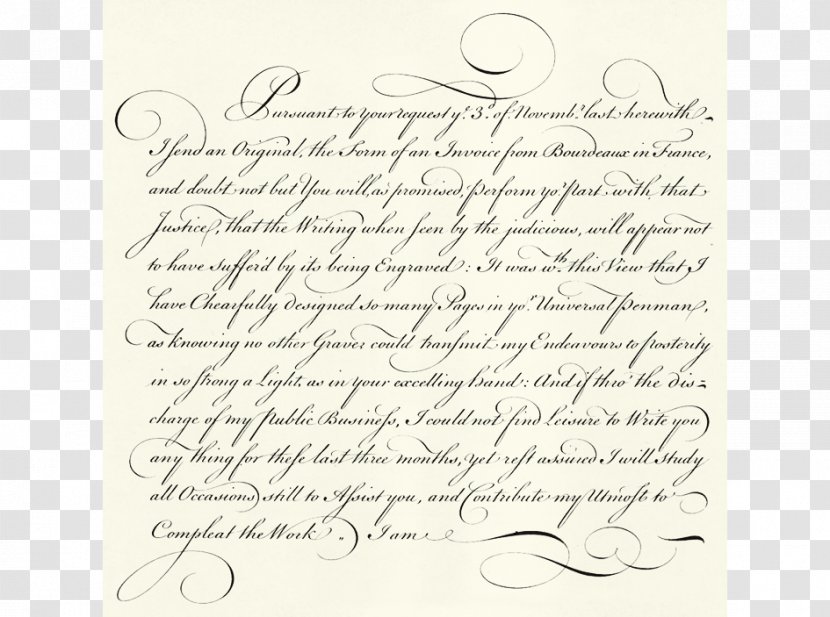 Pursuant to your request yᵉ 3ᵈ of Novembʳ last herewith
I send an Original, the Form of an Invoice from Bourdeaux in France,
and doubt not but You will, as promised, perform yoʳ part with that
Justice, that the Writing when seen by the judicious, will appear not
to have suffer'd by its being Engraved: It was wᵗʰ this View that I
have Chearfully designed so many Pages in yoʳ Universal Penman,
as knowing no other Graver could transmit my Endeavours to posterity
in so strong a Light, as in your excelling hand: And if thro' the dis=
charge of my Public Business, I could not find Leisure to Write you
any thing for these last three months, yet rest assured I will study
all Occasions still to Assist you, and Contribute my Utmost to
Compleat the Work „ I am